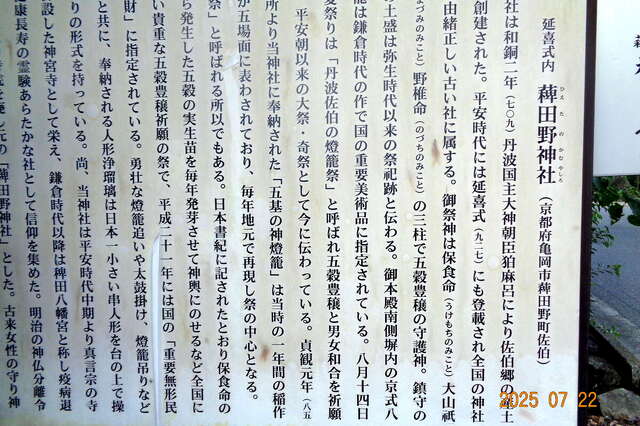 延喜式内 薭田野神社 (京都府亀岡市薭田野町佐伯)
ひえたのかむやしろ
社は和銅二年(七〇九)丹波国主大神朝臣狛麻呂により佐伯郷の産土
創建された。平安時代には延喜式(九二七)にも登載され全国の神社
由緒正しい古い社に属する。御祭神は保食命(うけもちのみこと)大山祇
まづみのみこと)野椎命(のづちのみこと)の三柱で五穀豊穣の守護神。鎮守の
の土盛は弥生時代以来の祭祀跡と伝わる。御本殿南側塀内の京式八
能は鎌倉時代の作で国の重要美術品に指定されている。八月十四日
夏祭りは「丹波佐伯の燈籠祭」と呼ばれ五穀豊穣と男女和合を祈願
平安朝以来の大祭・奇祭として今に伝わっている。貞観元年(八五
所より当神社に奉納された「五基の神燈籠」は当時の一年間の稲作
が五場面に表わされており、毎年地元で再現し祭の中心となる。
祭」と呼ばれる所以でもある。日本書紀に記されたとおり保食命の
ら発生した五穀の実生苗を毎年発芽させて神輿にのせるなど全国に
い貴重な五穀豊穣祈願の祭で、平成二十一年には国の「重要無形民
財」に指定されている。勇壮な燈籠追いや太鼓掛け、燈籠吊りなど
と共に、奉納される人形浄瑠璃は日本一小さい串人形を台の上で操
りの形式を持っている。尚、当神社は平安時代中期より真言宗の寺
設した神宮寺として栄え、鎌倉時代以降は稗田八幡宮と称し疫病退
康長寿の霊験あらたかな社として信仰を集めた。明治の神仏分離令
元の「薭田野神社」とした。古来女性の守り神
2025 07 22